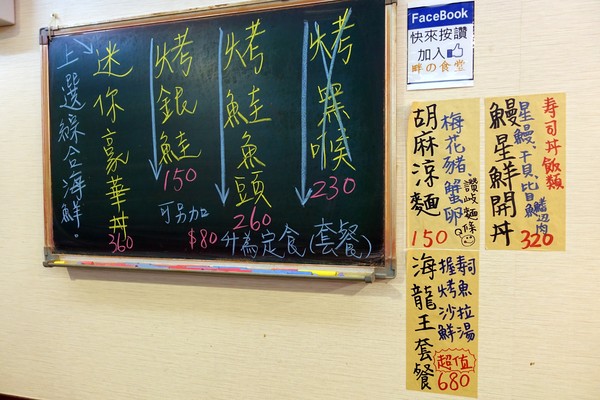 烤黑喉
230
烤鮭魚頭
260
烤銀鮭
150
迷你豪華丼
360
上選綜合海鮮.
可另加$80升為定食(套餐)
FaceBook
快來按讚
加入
畔の食堂
胡麻涼麵
梅花豬.蟹卵
讚岐麵條
150
寿司丼飯類
星鰻.干貝.比目魚
鰻星鮮開丼
320
海龍王套餐
握寿司
烤魚
沙拉
鮮湯
超值
680